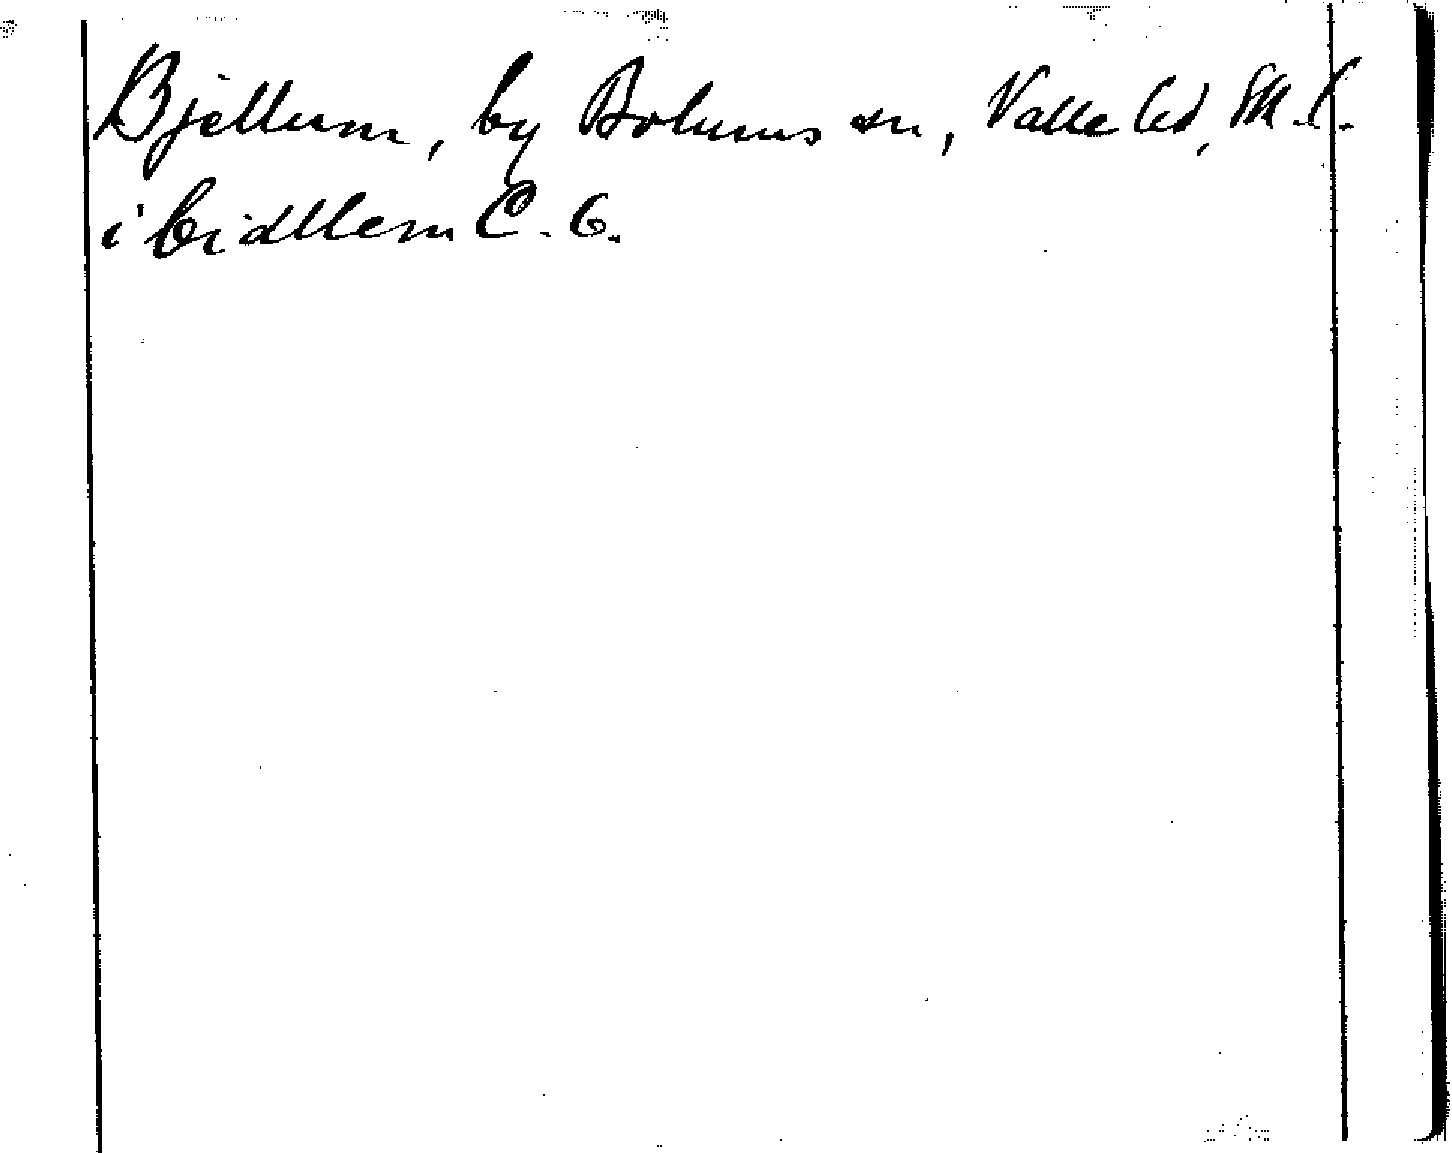 Bjellum, by Bolums sn, Valle hd, Sk. l.
i bidllem C. G.